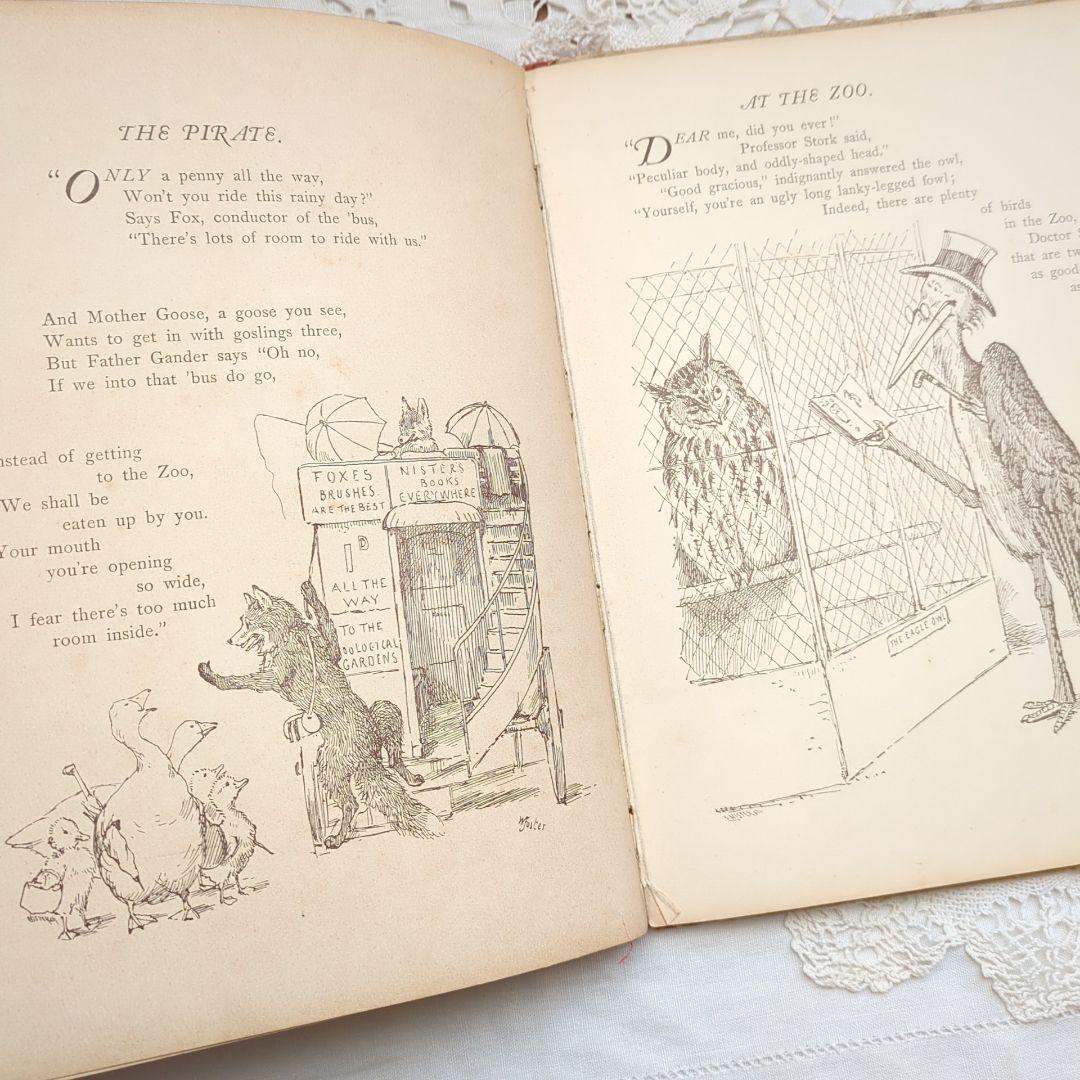 THE PIRATE.
"ONLY a penny all the way,
Won't you ride this rainy day?"
Says Fox, conductor of the 'bus,
"There's lots of room to ride with us."
And Mother Goose, a goose you see,
Wants to get in with goslings three,
But Father Gander says "Oh no,
If we into that 'bus do go,
nstead of getting
to the Zoo,
We shall be
eaten up by you.
Your mouth
you're opening
so wide,
I fear there's too much
room inside."
FOXES
BRUSHES
ARE THE BEST
NISTER'S
BOOKS
EVERYWHERE
1D
ALL THE
WAY
TO THE
OOLOGICAL
GARDENS
W Foster
AT THE ZOO.
"DEAR me, did you ever!"
Professor Stork said,
"Peculiar body, and oddly-shaped head."
"Good gracious," indignantly answered the owl,
"Yourself, you're an ugly long lanky-legged fowl;
Indeed, there are plenty
of birds
in the Zoo,
Doctor
that are tw
as good
as
THE EAGLE OWL